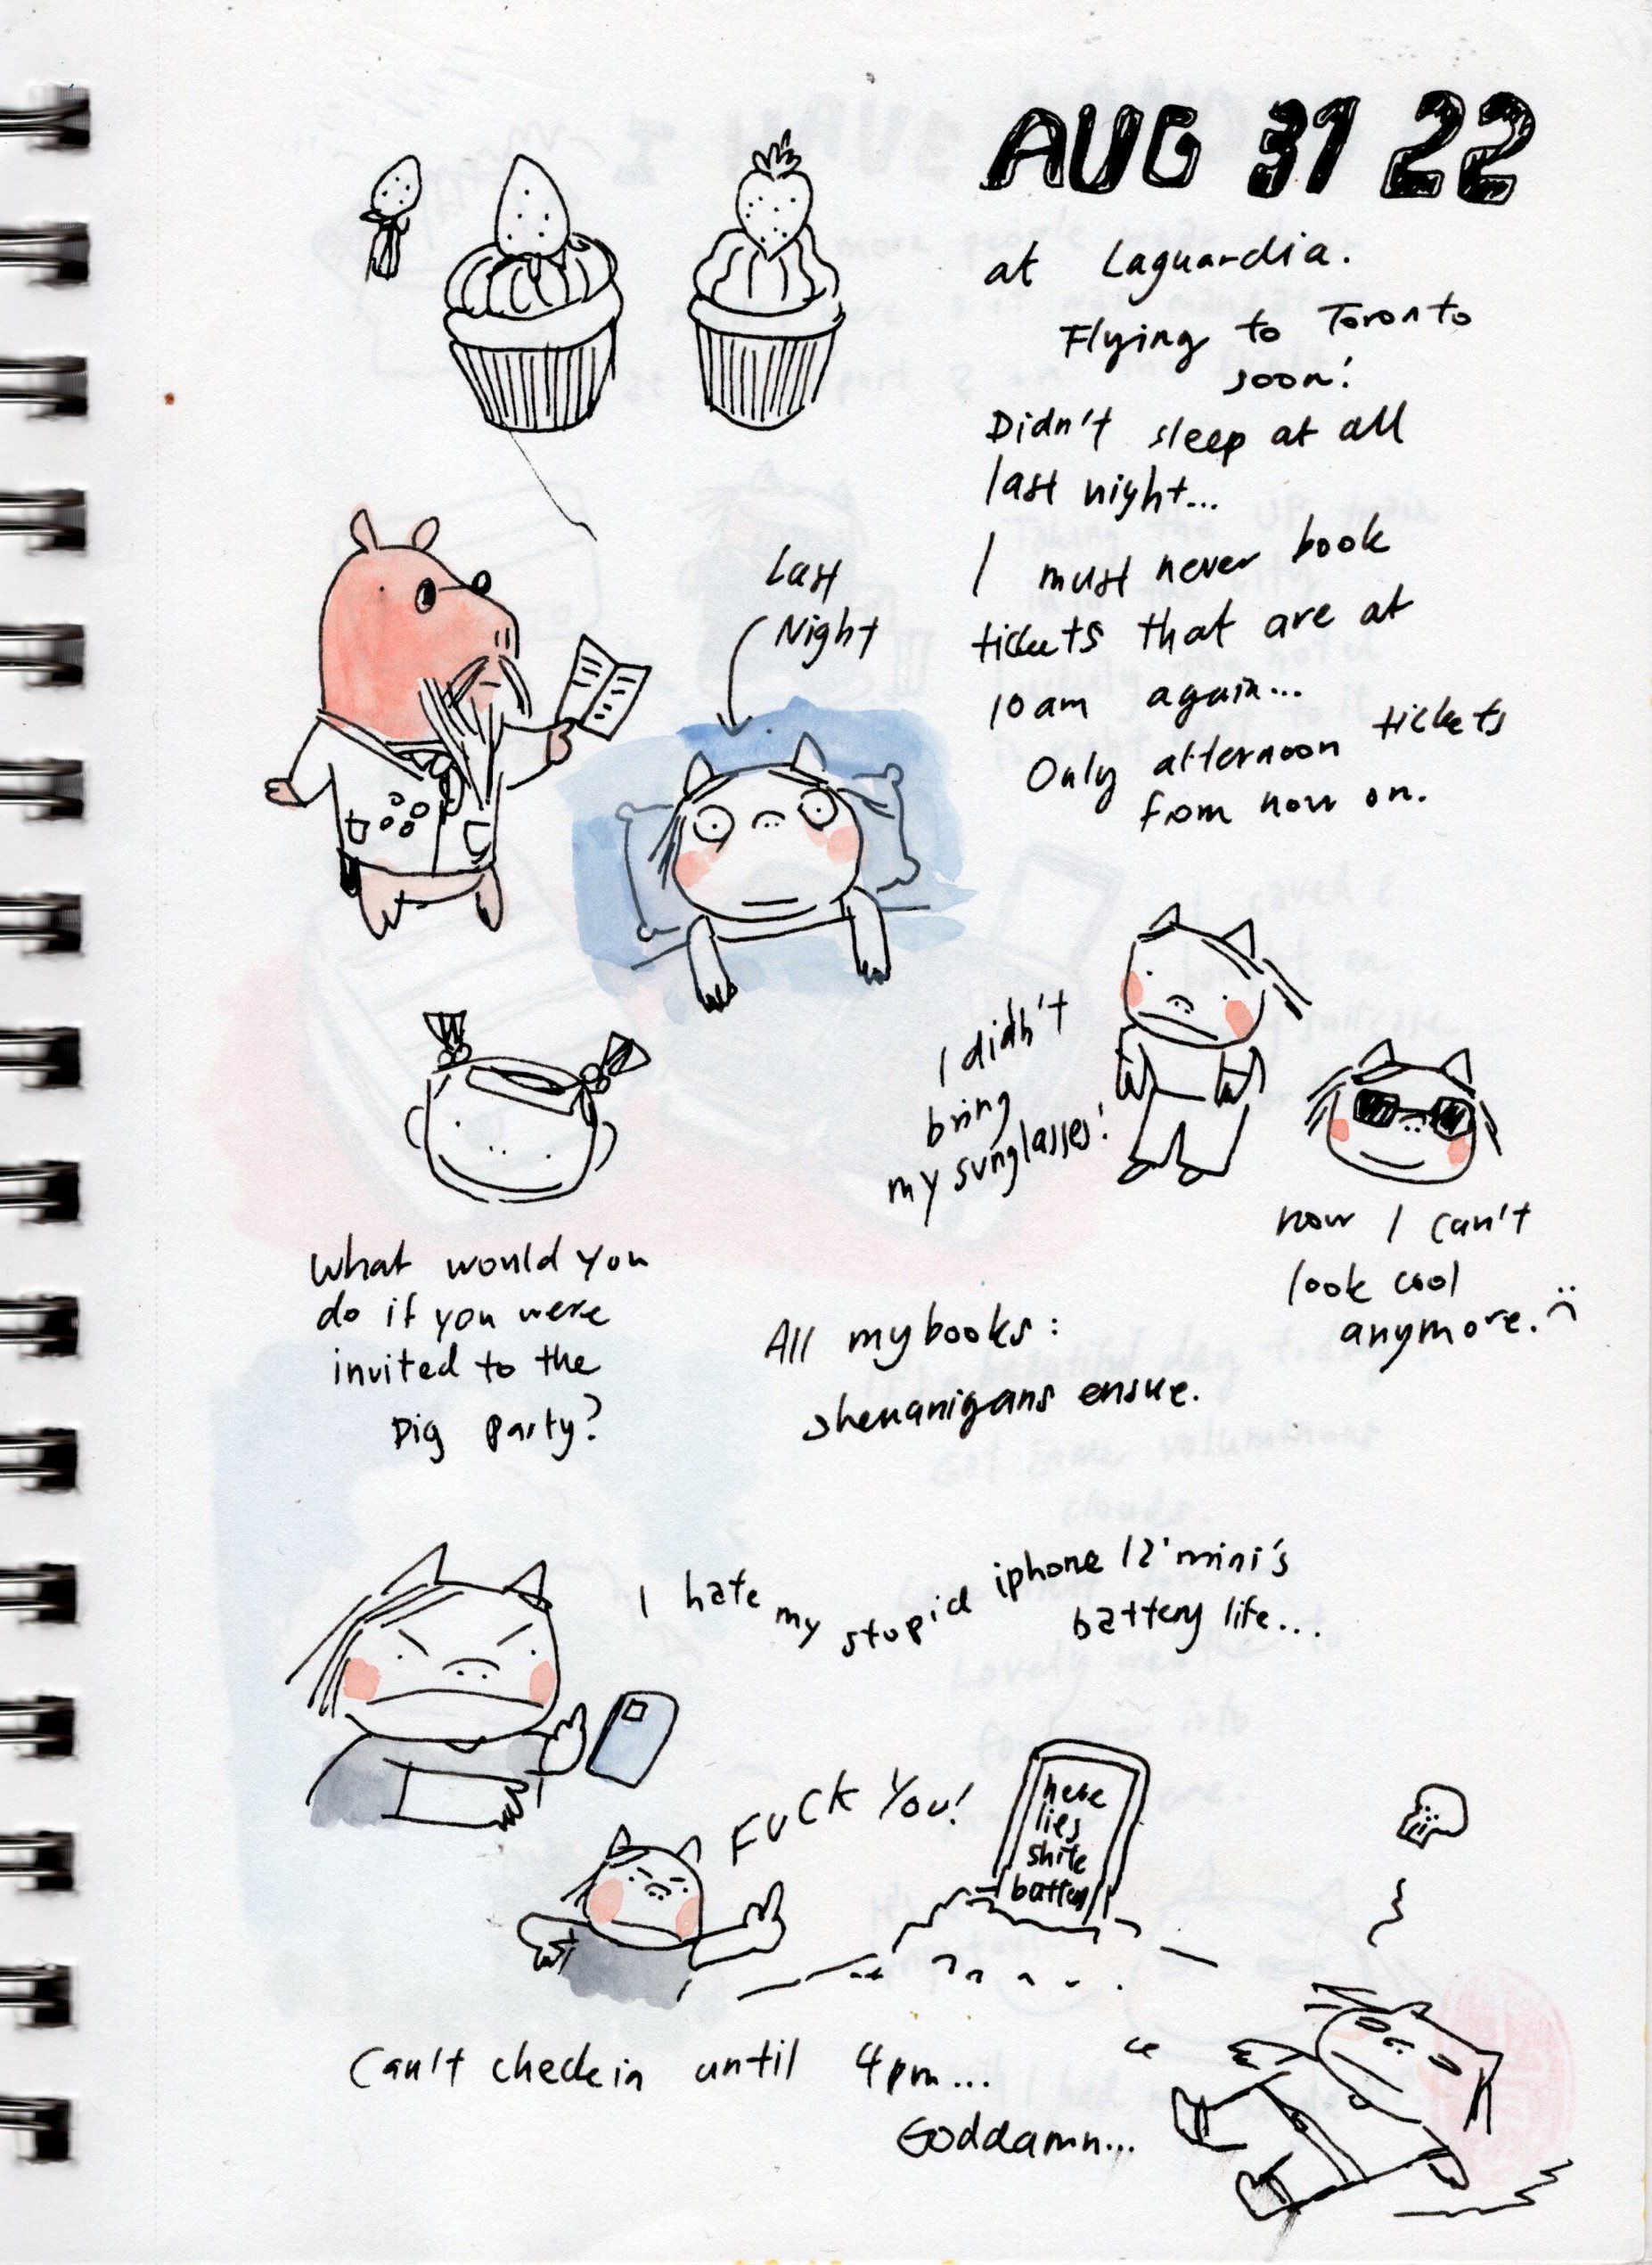 AUG 31 22
at Laguardia.
Flying to Toronto
soon!
Didn't sleep at all
last night...
I must never book
tickets that are at
10am again...
Only afternoon tickets
from now on.
Last
Night
I didn't
bring
my sunglasses!
now I can't
look cool
anymore. :(
What would you
do if you were
invited to the
Pig Party?
All my books:
shenanigans ensue.
I hate my stupid iphone 12 mini's
battery life...
FUCK YOU!
here
lies
shite
battery
Can't check in until 4pm...
Goddamn...